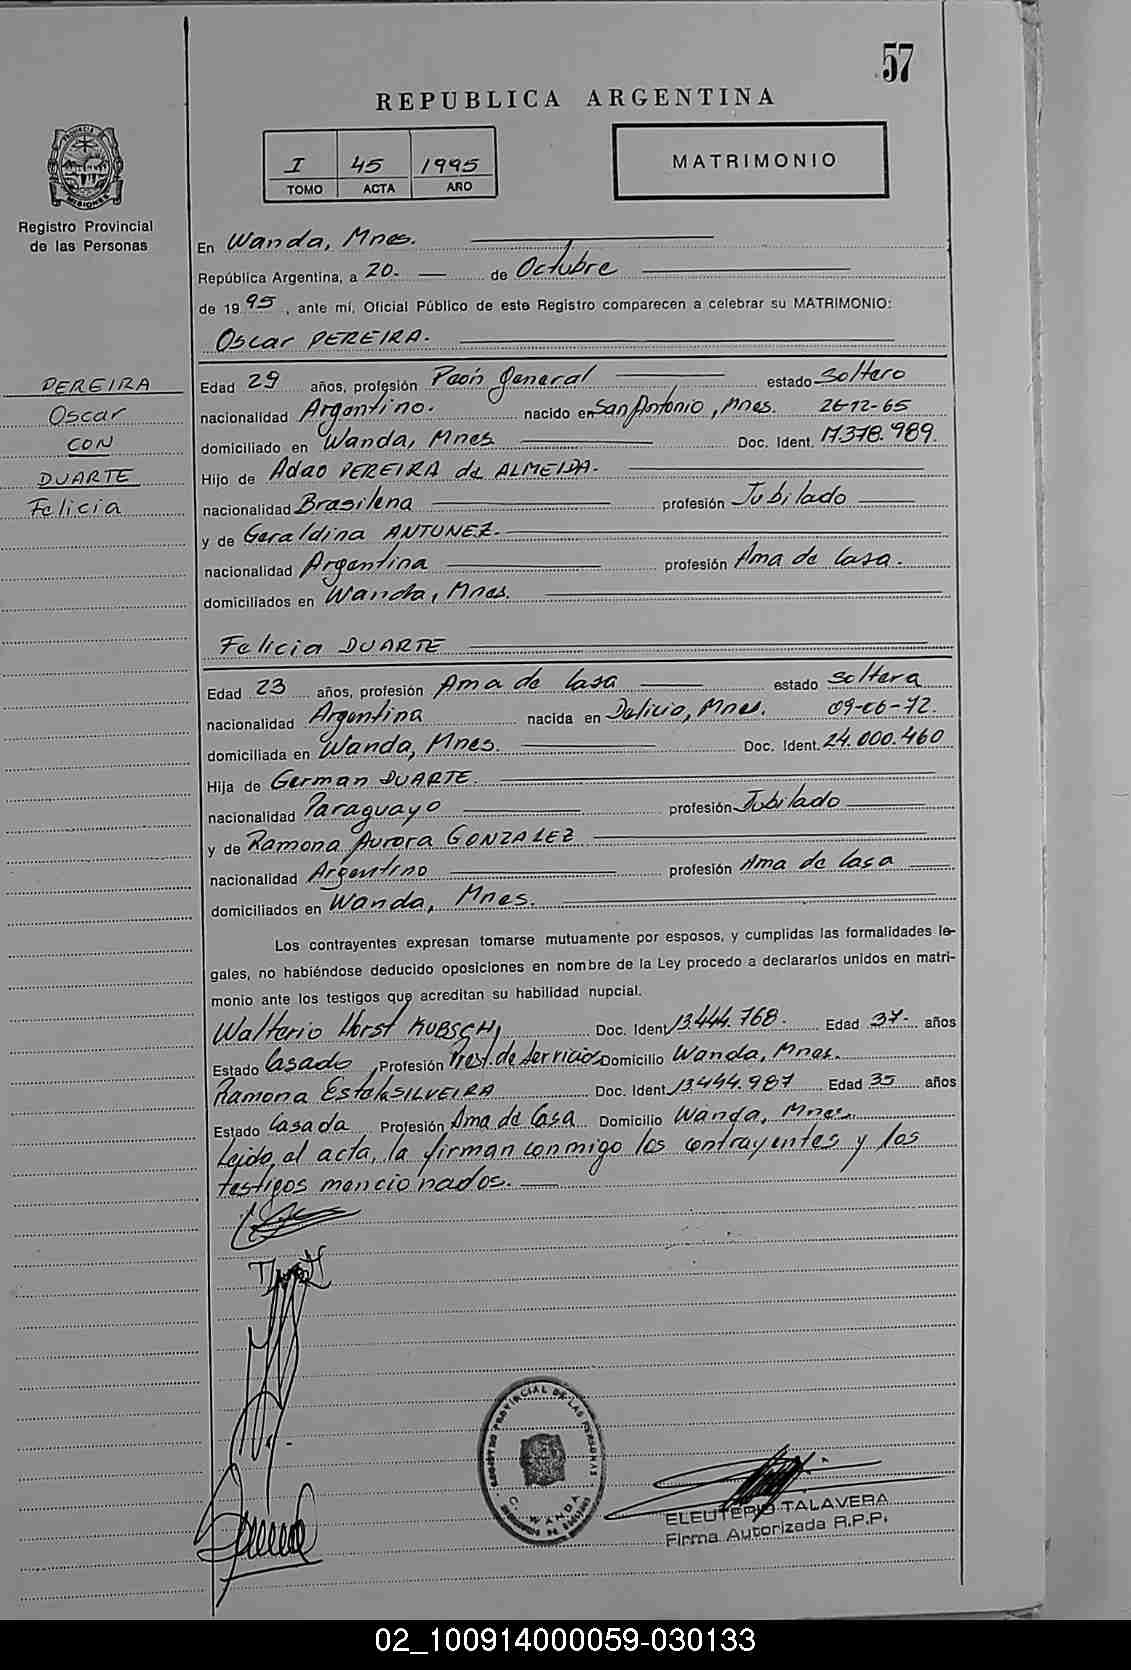 57
REPUBLICA ARGENTINA
I 45 1995
TOMO ACTA AÑO
MATRIMONIO
PROVINCIA DE MISIONES
Registro Provincial
de las Personas
En Wanda, Mnes.
República Argentina, a 20.- de Octubre
de 1995, ante mí, Oficial Público de este Registro comparecen a celebrar su MATRIMONIO:
Oscar PEREIRA.
PEREIRA
Oscar
CON
DUARTE
Felicia
Edad 29 años, profesión Peón general estado soltero
nacionalidad Argentino. nacido en San Antonio, Mnes. 26-12-65
domiciliado en Wanda, Mnes Doc. Ident. 17.378.989.
Hijo de Adao PEREIRA de ALMEIDA.
nacionalidad Brasilena profesión Jubilado
y de Geraldina ANTUNEZ.
nacionalidad Argentina profesión Ama de Casa.
domiciliados en Wanda, Mnes.
Felicia DUARTE
Edad 23 años, profesión Ama de Casa estado soltera
nacionalidad Argentina nacida en Delicia, Mnes. 09-06-72.
domiciliada en Wanda, Mnes. Doc. Ident. 24.000.460
Hija de German DUARTE.
nacionalidad Paraguayo profesión Jubilado
y de Ramona Aurora GONZALEZ
nacionalidad Argentino profesión Ama de Casa
domiciliados en Wanda, Mnes.
Los contrayentes expresan tomarse mutuamente por esposos, y cumplidas las formalidades le-
gales, no habiéndose deducido oposiciones en nombre de la Ley procedo a declararlos unidos en matri-
monio ante los testigos que acreditan su habilidad nupcial.
Walterio Horst KUBSCH, Doc. Ident. 13.444.768. Edad 37- años
Estado Casado, Profesión Prest. de Servicios Domicilio Wanda, Mnes.
Ramona Estela SILVEIRA Doc. Ident. 13.454.987 Edad 35 años
Estado Casada Profesión Ama de Casa Domicilio Wanda, Mnes.
Leido el acta, la firman conmigo los contrayentes y los
testigos mencionados.
REGISTRO PROVINCIAL DE LAS PERSONAS
WANDA
ELEUTERIO TALAVERA
Firma Autorizada R.P.P.
02_100914000059-030133